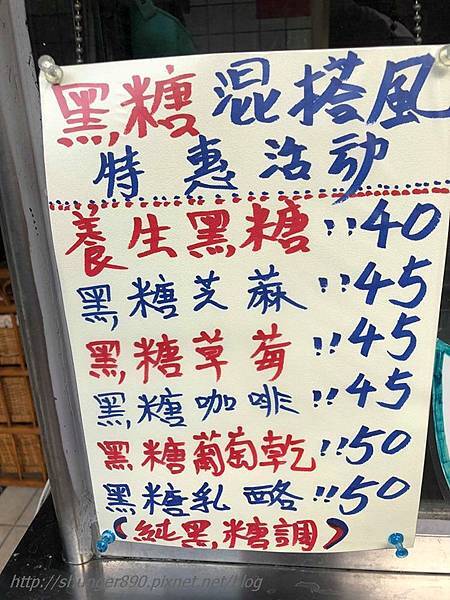 黑糖混搭風
特惠活动
養生黑糖!!40
黑糖芝蔴!!45
黑糖草莓!!45
黑糖咖啡!!45
黑糖葡萄乾!!50
黑糖乳酪!!50
(純黑糖調)
http://shunger890.pixnet.net/blog